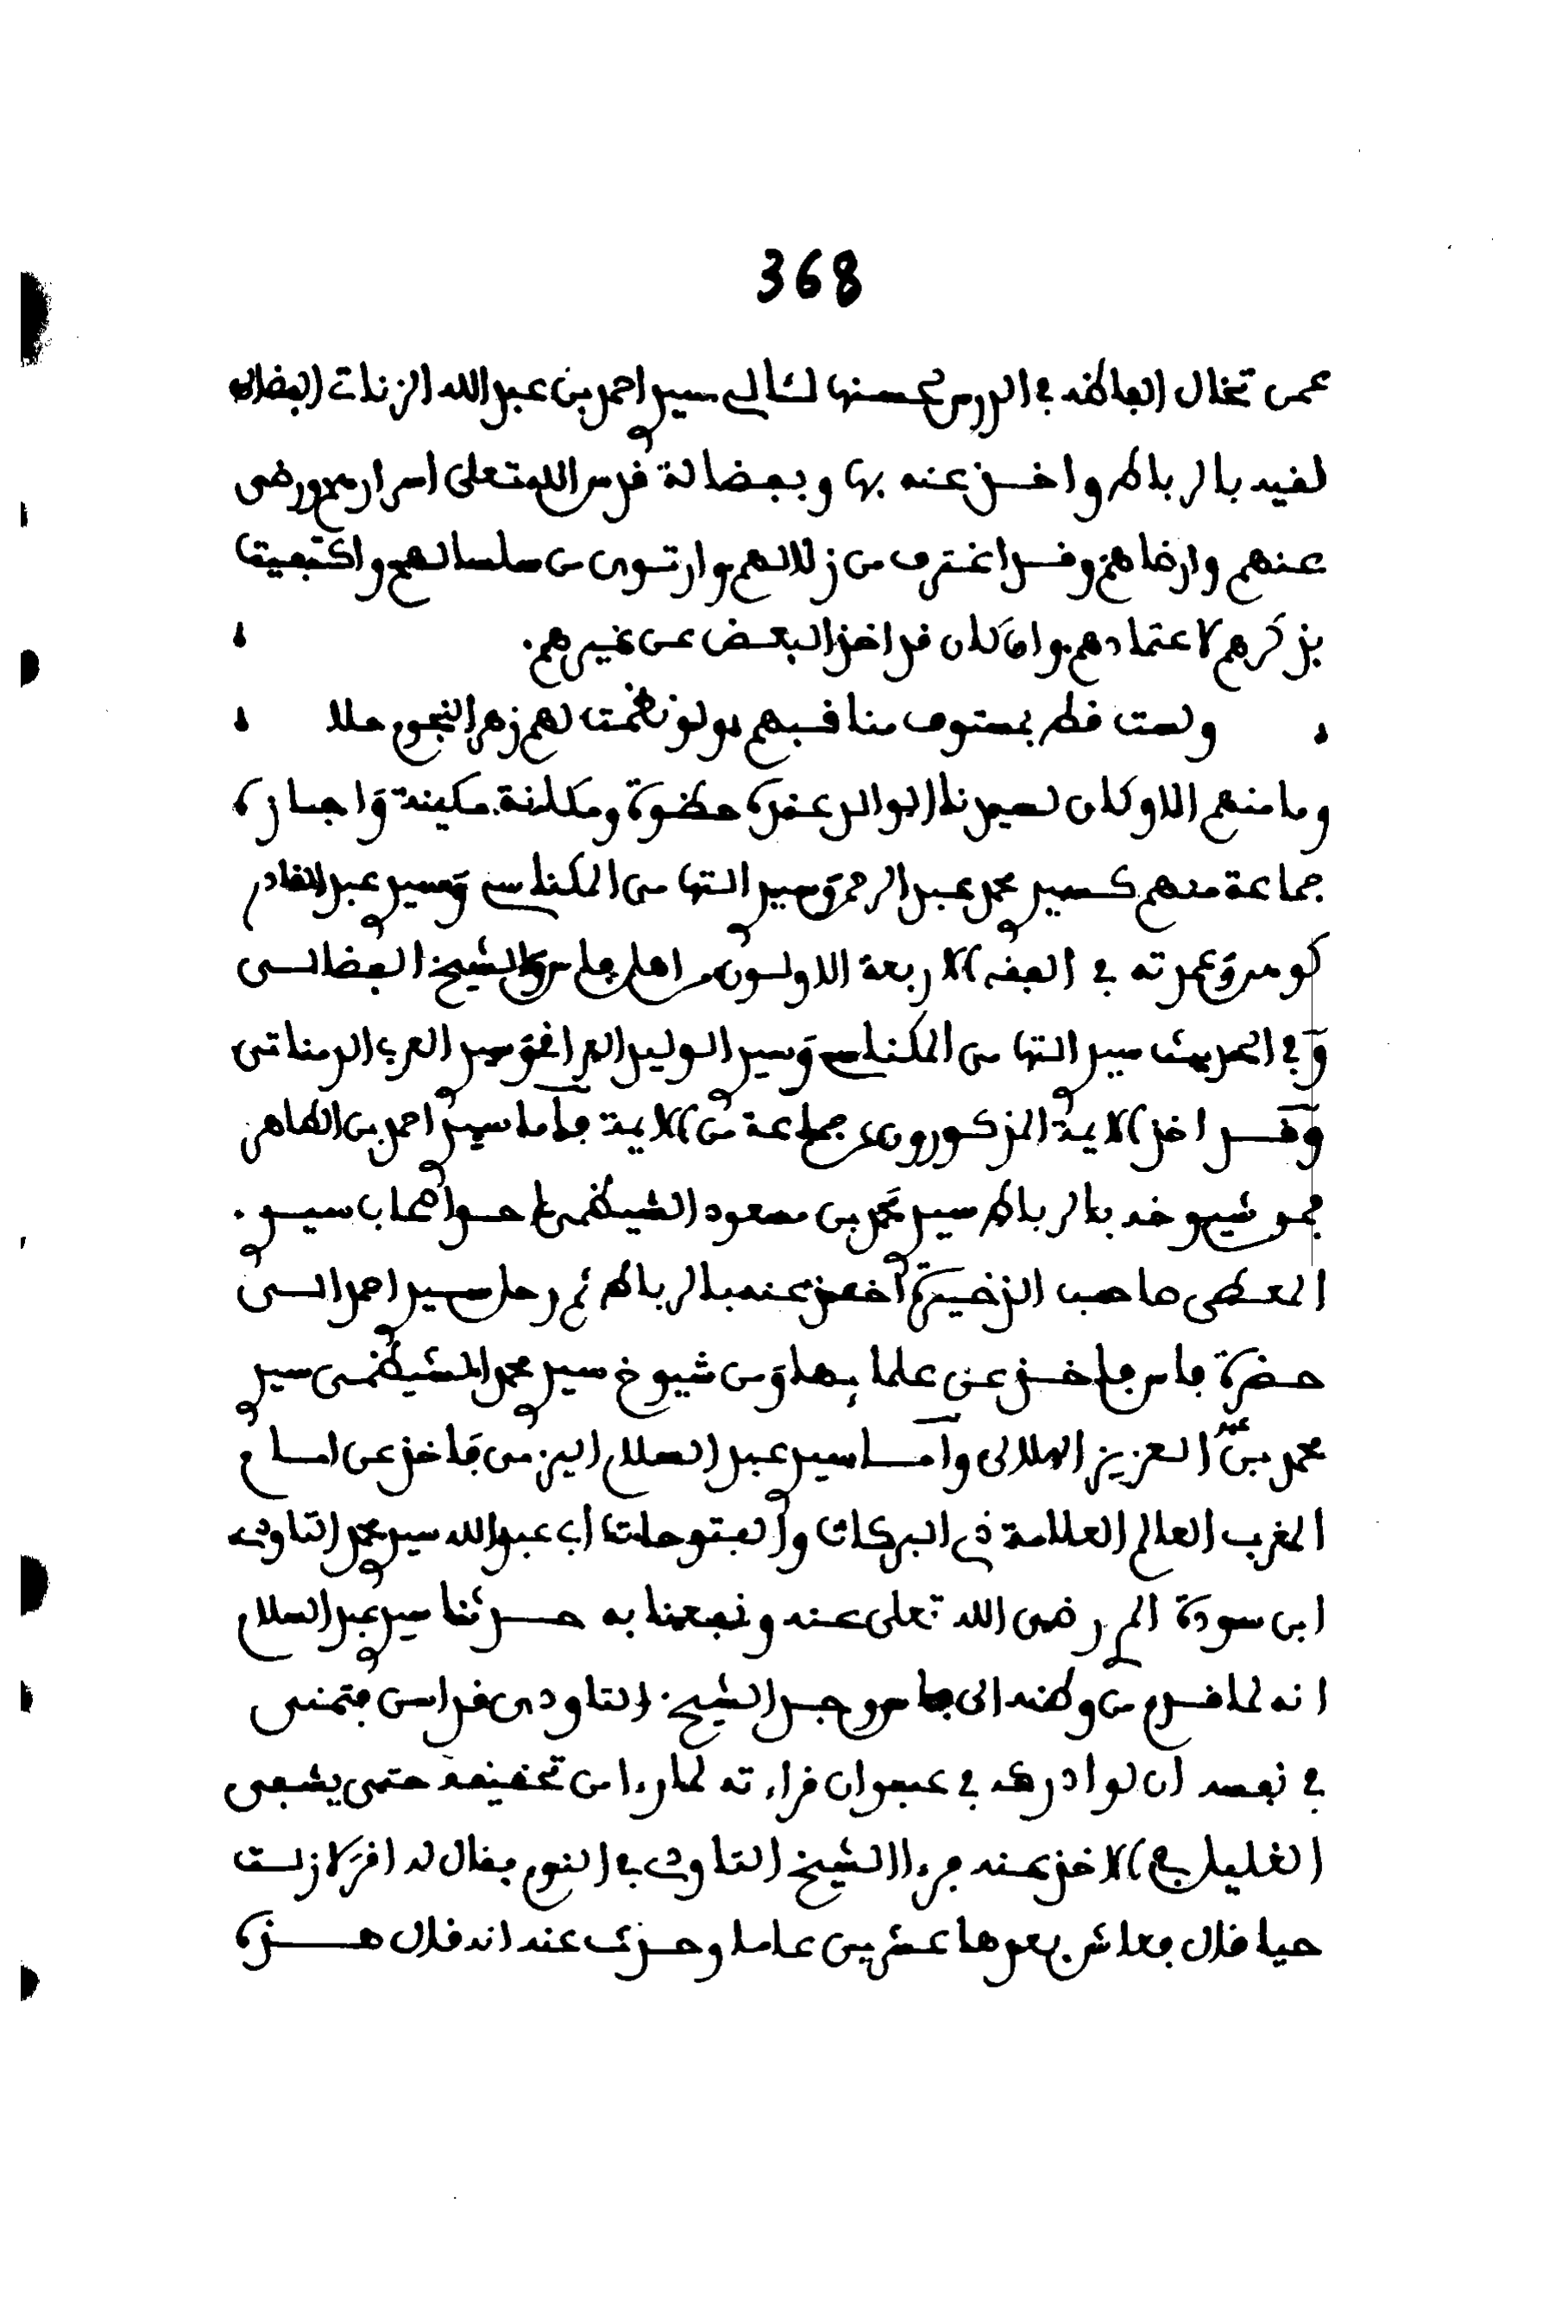 368
عمن تخال الفاظه في الدروس لحسنها لئالي سيدي احمد بن عبد الله الزناتي الفضالي
لقيه بالرباط واخذ عنه بها وبفضالة قدس الله تعلى اسرارهم ورضي
عنهم وارضاهم وقد اغترف من زلالهم وارتوى من سلسالهم واكتفيت
بذكرهم لاعتمادهم وان كان قد اخذ البعض عن غيرهم.
ولست قط بمستوف مناقبهم ولو نظمت لهم زهر النجوم حلا
وما منهم الا وكان لسيدنا الوالد عنده حظوة ومكانة مكينة واجازه
جماعة منهم كسيدي محمد عبد الرحمن وسيدي التهامي المكناسي وسيدي عبد القادر
كوهن وعمدته في الفقه الاربعة الاولون من اهل فاس والشيخ الفضالي
وفي الحديث سيدي التهامي المكناسي وسيدي الوليد العراقي وسيدي العربي الدمناتي
وقد اخذ الايمة المذكورون عن جماعة من الايمة فاما سيدي احمد بن الطاهر
فمن شيوخه بالرباط سيدي محمد بن مسعود الشيظمي احد اصحاب سيدي
المعطى صاحب الذخيرة اخذ عنه بالرباط ثم رحل سيدي احمد الى
حضرة فاس فاخذ عن علمايها ومن شيوخ سيدي محمد الشيظمي سيدي
محمد بن عبد العزيز الهلالي واما سيدي عبد السلام اليزمي فاخذ عن امام
المغرب العالم العلامة ذي البركات والفتوحات ابي عبد الله سيدي محمد التاودي
ابن سودة المري رضي الله تعلى عنه ونفعنا به حدثنا سيدي عبد السلام
انه لما قدم من وطنه الى فاس وجد الشيخ التاودي قد اسن فتمنى
في نفسه ان لو ادركه في عنفوان قراءته لما رءا من تحقيقه حتى يشفي
الغليل في الاخذ عنه فرءا الشيخ التاودي في النوم فقال له اقرأ لا زلت
حيا قال فعاش بعدها عشرين عاما وحدثت عنه انه قال هذه